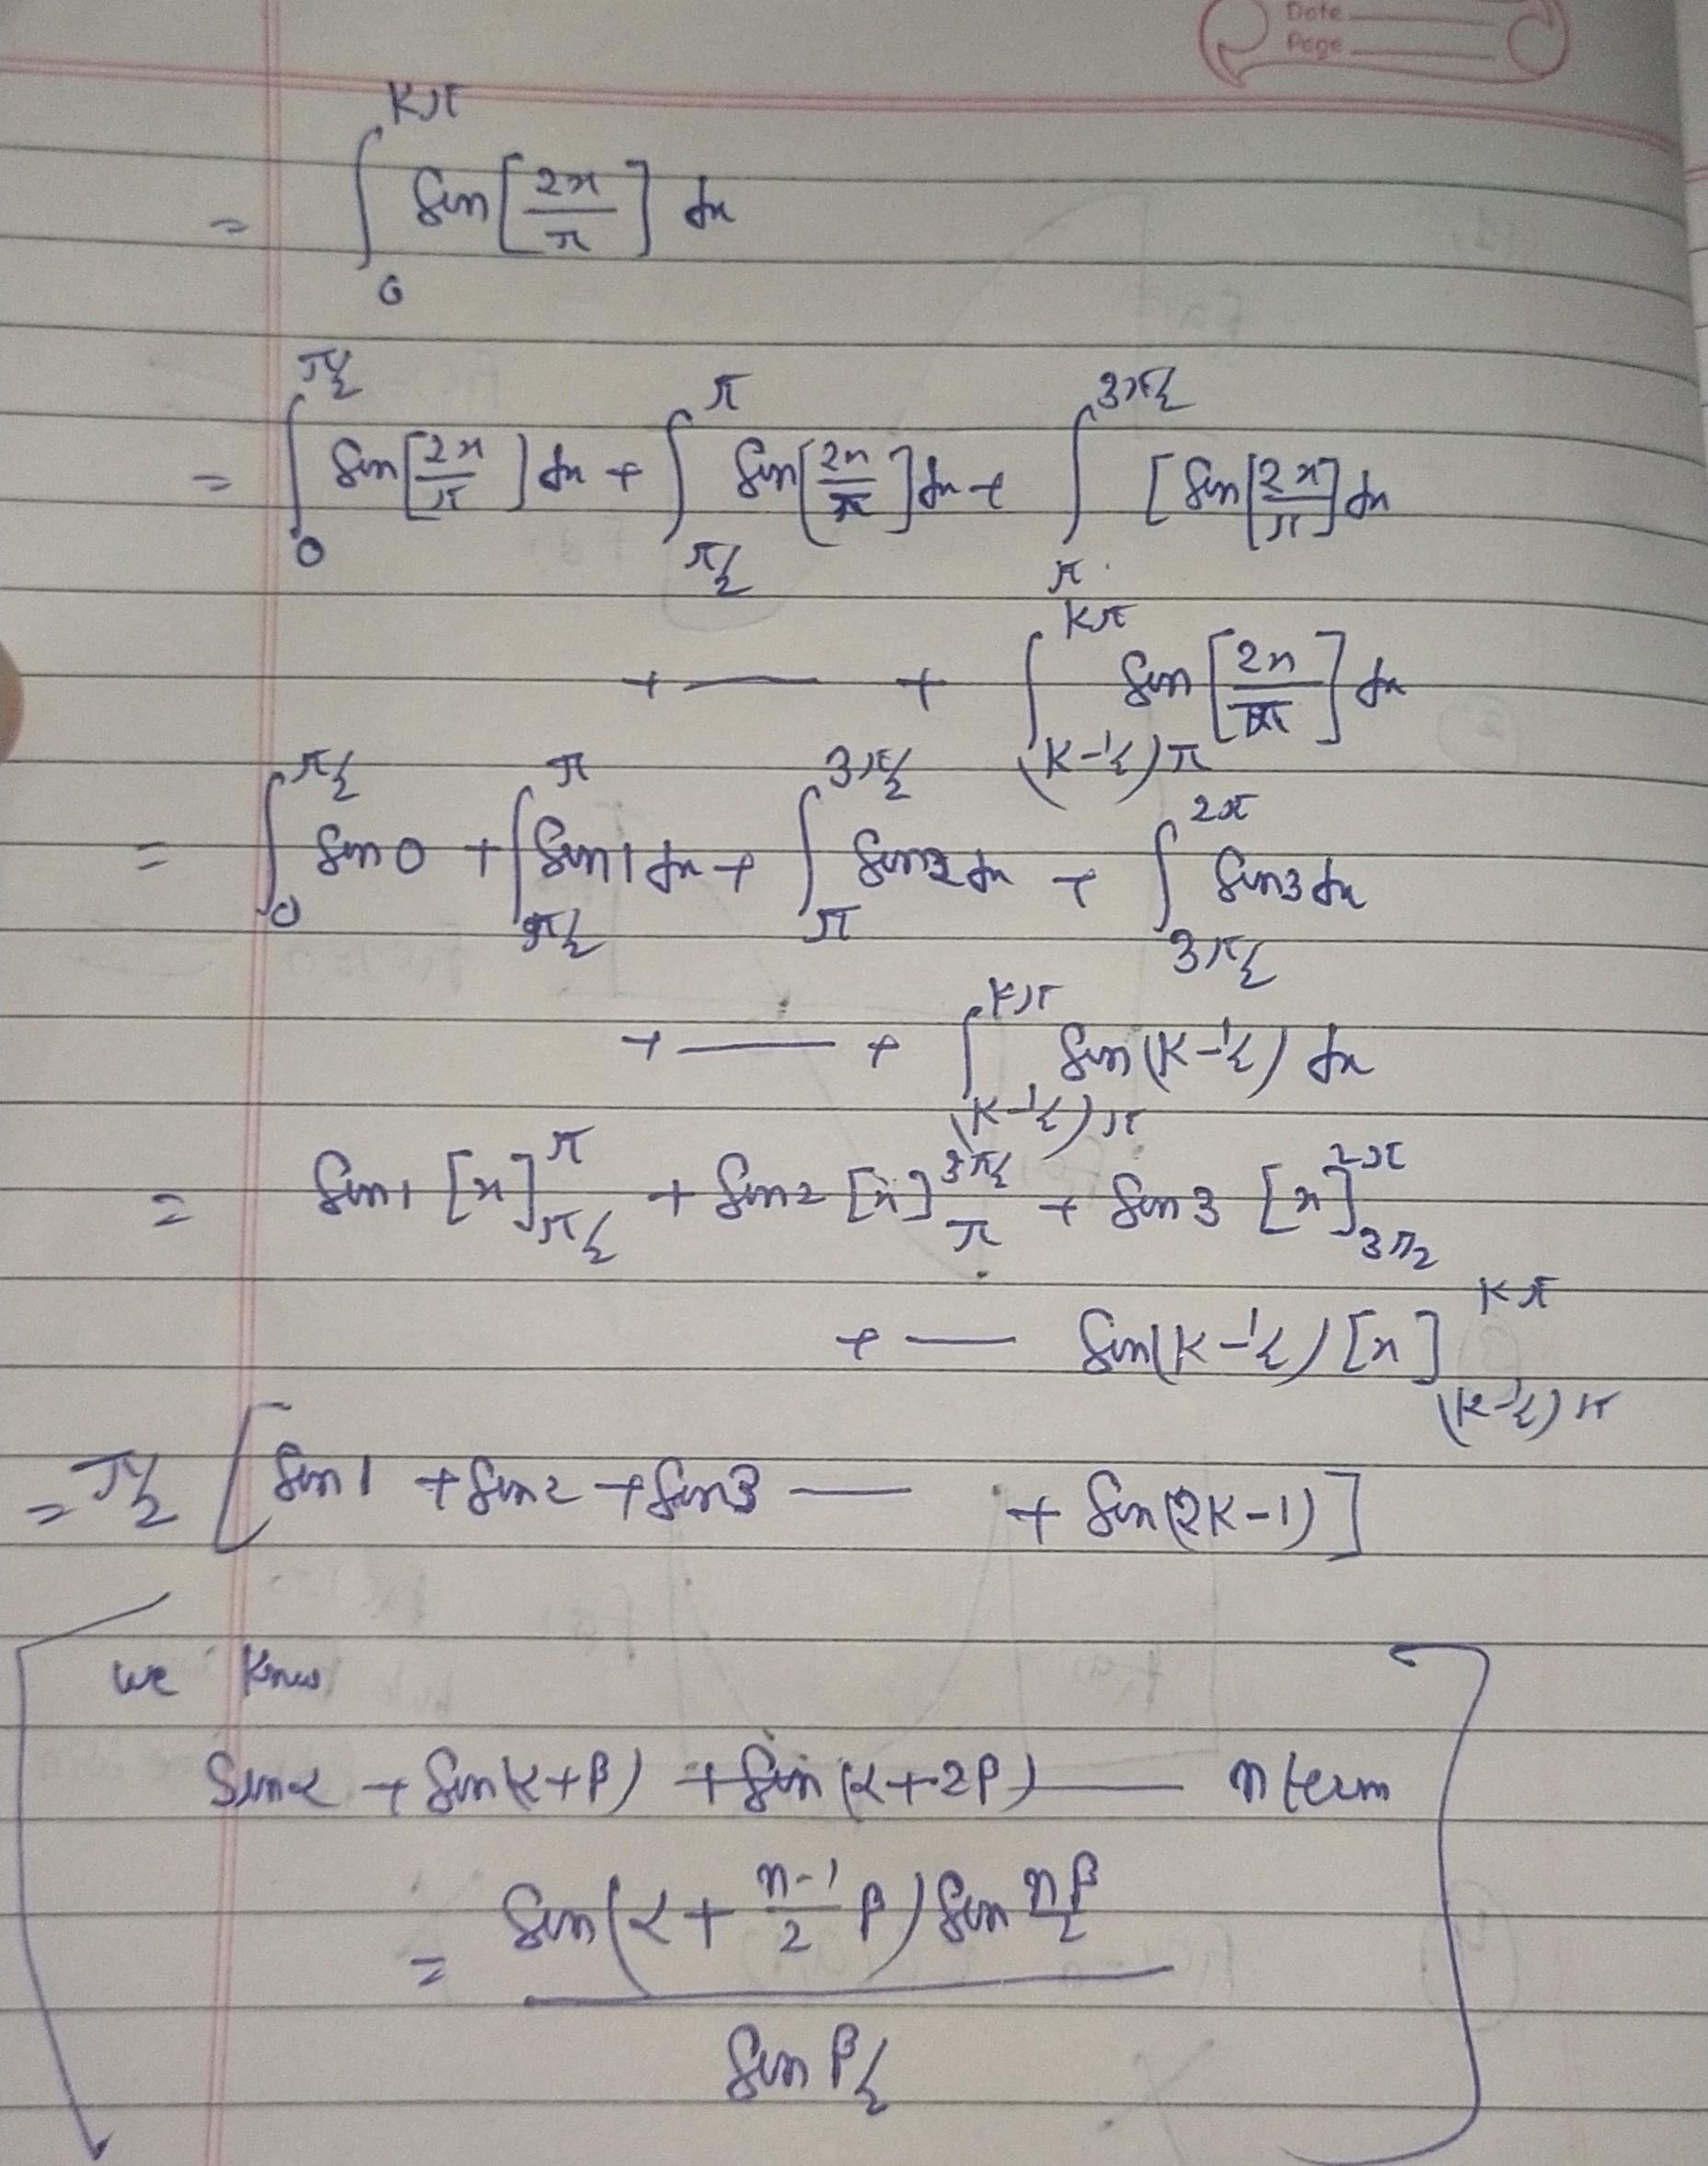 Date
Page
= ∫_0^{Kπ} Sin[2x/π] dx
= ∫_0^{π/2} Sin[2x/π] dx + ∫_{π/2}^{π} Sin[2x/π] dx + ∫_π^{3π/2} [Sin[2x/π] dx
+ — + ∫_{(K-1/2)π}^{Kπ} Sin[2x/π] dx
= ∫_0^{π/2} Sin0 + ∫_{π/2}^{π} Sin1 dx + ∫_π^{3π/2} Sin2 dx + ∫_{3π/2}^{2π} Sin3 dx
+ — + ∫_{(K-1/2)π}^{Kπ} Sin(K-1/2) dx
= Sin1 [x]_{π/2}^{π} + Sin2 [x]_π^{3π/2} + Sin3 [x]_{3π/2}^{2π}
+ — Sin(K-1/2) [x]_{(K-1/2)π}^{Kπ}
= π/2 [Sin1 + Sin2 + Sin3 — + Sin(2K-1)]
we know
Sinα + Sin(α+β) + Sin(α+2β) — n term
= Sin(α + n-1/2 β) Sin nβ/2
Sin β/2